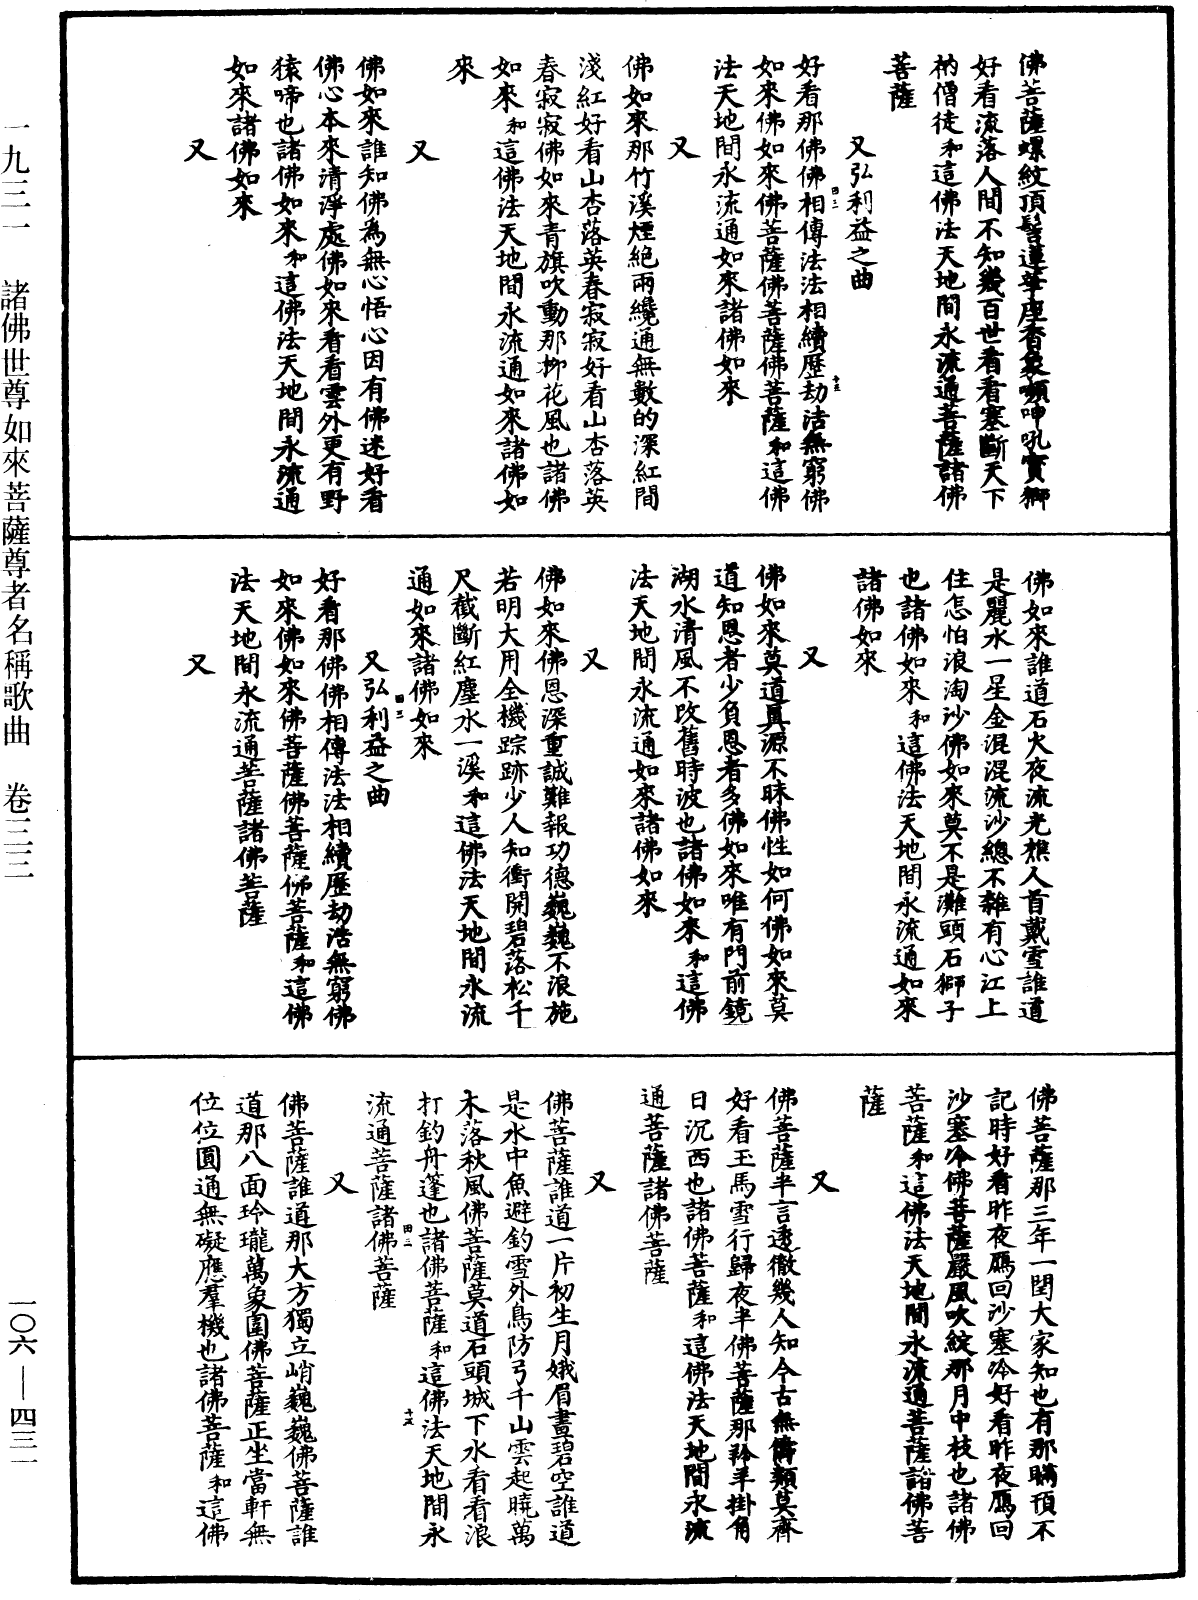 佛菩薩螺紋頂髻蓮華座香象嚬呻吼寶獅
好看流落人間不知幾百世看看塞斷天下
衲僧徒和這佛法天地間永流通菩薩諸佛
菩薩
又弘利益之曲
好看那佛佛相傳法法相續歷劫浩無窮佛
如來佛如來佛菩薩佛菩薩佛菩薩和這佛
法天地間永流通如來諸佛如來
又
佛如來那竹溪煙絕雨纔通無數的深紅間
淺紅好看山杏落英春寂寂好看山杏落英
春寂寂佛如來青旗吹動那柳花風也諸佛
如來和這佛法天地間永流通如來諸佛如
來
又
佛如來誰知佛為無心悟心因有佛迷好看
佛心本來清淨處佛如來看看雲外更有野
猿啼也諸佛如來和這佛法天地間永流通
如來諸佛如來
又
佛如來誰道石火夜流光樵人首戴雪誰道
是麗水一星金混混流沙總不雜有心江上
住怎怕浪淘沙佛如來莫不是灘頭石獅子
也諸佛如來和這佛法天地間永流通如來
諸佛如來
又
佛如來莫道真源不昧佛性如何佛如來莫
道知恩者少負恩者多佛如來唯有門前鏡
湖水清風不改舊時波也諸佛如來和這佛
法天地間永流通如來諸佛如來
又
佛如來佛恩深重誠難報功德巍巍不浪施
若明大用全機踪跡少人知衝開碧落松千
尺截斷紅塵水一溪和這佛法天地間永流
通如來諸佛如來
又弘利益之曲
好看那佛佛相傳法法相續歷劫浩無窮佛
如來佛如來佛菩薩佛菩薩佛菩薩和這佛
法天地間永流通菩薩諸佛菩薩
又
佛菩薩那三年一閏大家知也有那瞞頇不
記時好看昨夜鴈回沙塞冷好看昨夜鴈回
沙塞冷佛菩薩嚴風吹綻那月中枝也諸佛
菩薩和這佛法天地間永流通菩薩諸佛菩
薩
又
佛菩薩半言透徹幾人知今古無儔類莫齊
好看玉馬雪行歸夜半佛菩薩那羚羊掛角
日沉西也諸佛菩薩和這佛法天地間永流
通菩薩諸佛菩薩
又
佛菩薩誰道一片初生月娥眉畫碧空誰道
是水中魚避釣雪外鳥防弓千山雲起曉萬
木落秋風佛菩薩莫道石頭城下水看看浪
打釣舟蓬也諸佛菩薩和這佛法天地間永
流通菩薩諸佛菩薩
又
佛菩薩誰道那大方獨立峭巍巍佛菩薩誰
道那八面玲瓏萬象圍佛菩薩正坐當軒無
位位圓通無礙應羣機也諸佛菩薩和這佛
一九三一 諸佛世尊如來菩薩尊者名稱歌曲 卷三三 一〇六—四三一